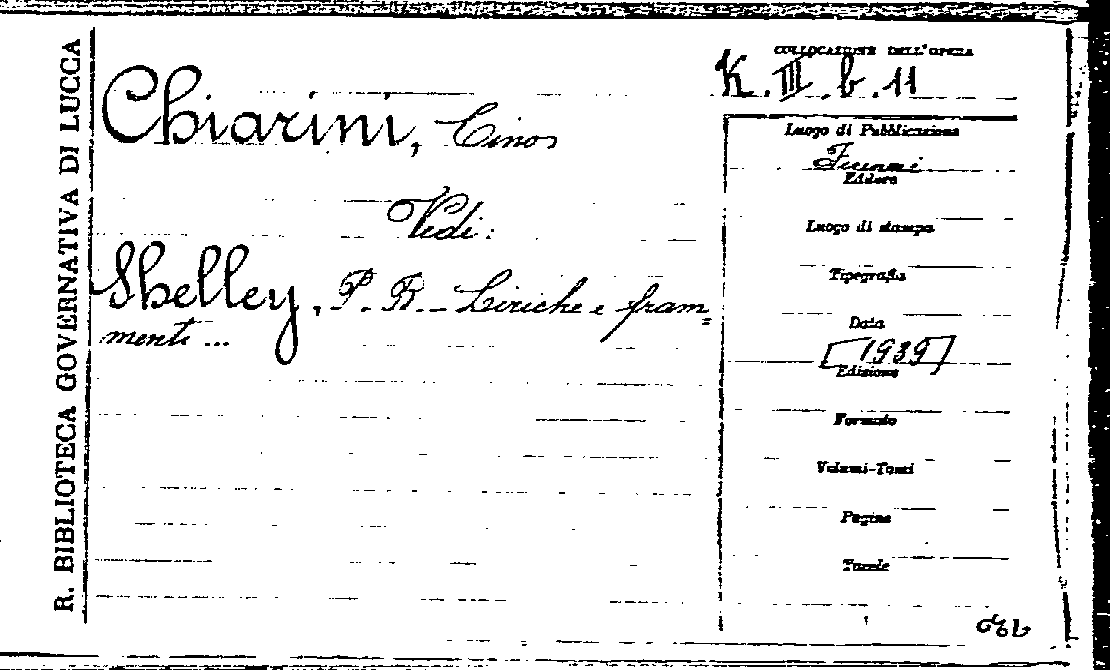 R. BIBLIOTECA GOVERNATIVA DI LUCCA
Chiarini, Cino
Vedi:
Shelley, P. B. - Liriche e fram=
menti ...
COLLOCAZIONE DELL'OPERA
K. III. b. 11
Luogo di Pubblicazione
Firenze
Editore
Luogo di stampa
Tipografia
Data
[1939]
Edizione
Formato
Volumi-Tomi
Pagine
Tavole